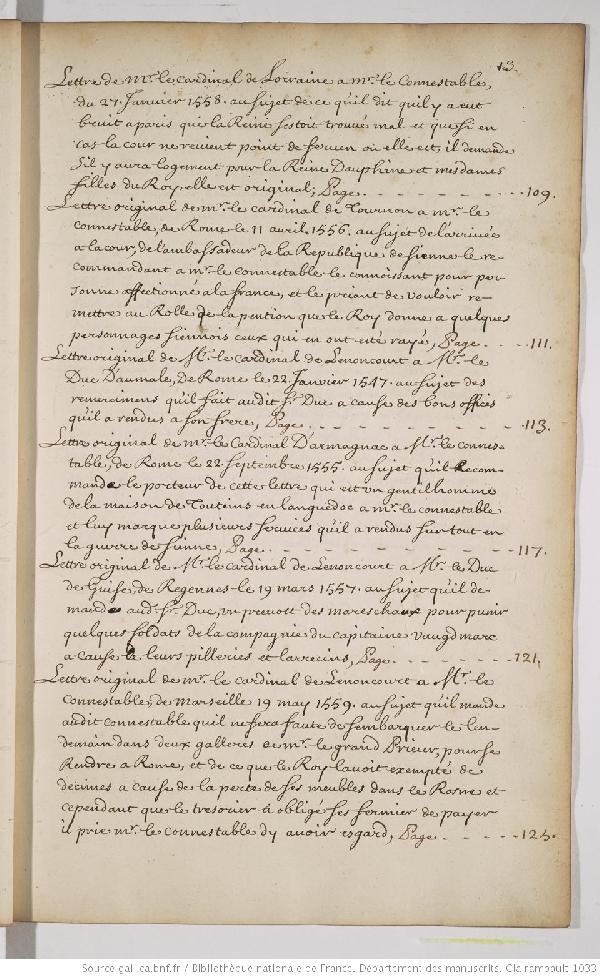 13.
Lettre de Mr. le Cardinal de Lorraine a Mr. le Connestable,
du 27. Janvier 1558. au sujet de ce qu'il dit qu'il y a eut
bruit a paris que la Reine s'estoit trouvé mal et que si en
cas la cour ne revient point de ou elle est, il demande
s'il y aura logement pour la Reine Dauphine et mesdames
filles du Roy, elle est original; Page . 109.
Lettre original de mr. le cardinal de Tournon a mr. le
connestable, de Rome le 11 avril 1556. au sujet de l'arrivée
a la cour, de l'ambassadeur de la Republique de Sienne le re-
commandant a mr. le connestable le connoissant pour per
sonne affectionné a la france, et le priant de vouloir re-
mettre au Rolle de la pention que le Roy donne a quelques
personnages siennois ceux qui en ont eté rayé, Page . 111.
Lettre original de Mr. le cardinal de Lenoncourt a Mr. le
Duc D'aumale, de Rome le 22. Janvier 1547. au sujet des
remercimens qu'il fait audit Sr. Duc a cause des bons offices
qu'il a rendus a son frere, Page . 113.
Lettre original de mr. le Cardinal D'armagnac a Mr. le connes-
table, de Rome le 22. Septembre 1555. au sujet qu'il Recom-
mande le porteur de cette lettre qui est un gentilhomme
de la maison de en languedoc a mr. le connestable
et luy marque plusieurs services qu'il a rendus sur tout en
la guerre de Sienne, Page . 117.
Lettre original de Mr. le cardinal de Lenoncourt a Mr. le Duc
de Guise, de Regennes le 19 mars 1557. au sujet qu'il de
mande aud. Sr. Duc, un prevost des mareschaux pour punir
quelques soldats de la compagnie du capitaine
a cause de leurs pilleries et larrecins, Page . 121.
Lettre original de mr. le cardinal de Lenoncourt a Mr. le
Connestable, de Marseille 19 may 1559. au sujet qu'il mande
audit connestable qu'il ne sera faute de s'embarquer le len-
demain dans deux galleres de mr. le grand Prieur, pour se
Rendre a Rome, et de ce que le Roy l'avoit exempté de
decimes a cause de la perte de ses meubles dans le Rosne et
cependant que le tresorier a obligé ses fermier de payer
il prie mr. le connestable d'y avoir esgard, Page . 125.
Source gallica.bnf.fr / Bibliothèque nationale de France. Département des manuscrits. Clairambault 1033